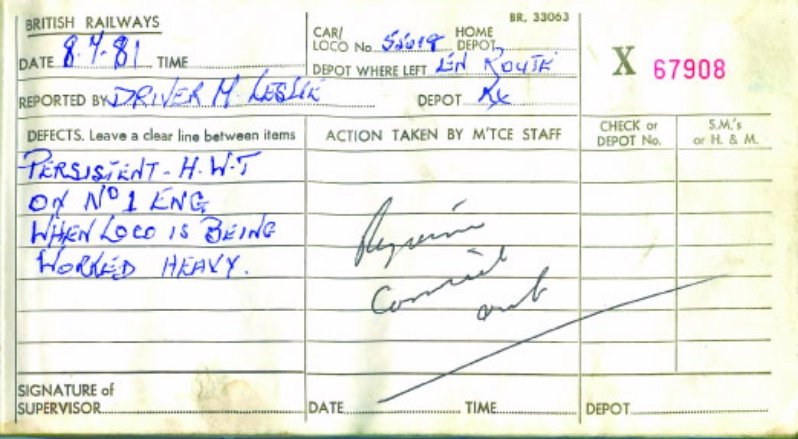 BRITISH RAILWAYS
BR. 33063
DATE 8.7.81 TIME
CAR/ LOCO No 55018 HOME DEPOT
DEPOT WHERE LEFT EN ROUTE
X 67908
REPORTED BY DRIVER M. LESLIE DEPOT
DEFECTS. Leave a clear line between items
ACTION TAKEN BY M'TCE STAFF
CHECK or DEPOT No.
S.M.'s or H. & M.
PERSISTENT - H.W.T
ON No 1 ENG
WHEN LOCO IS BEING
WORKED HEAVY.
Repairs
Carried
out
SIGNATURE of
SUPERVISOR DATE TIME DEPOT